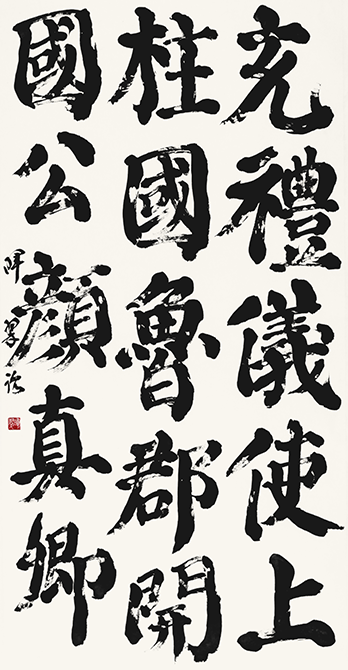 充禮儀使上
柱國魯郡開
國公顏真卿